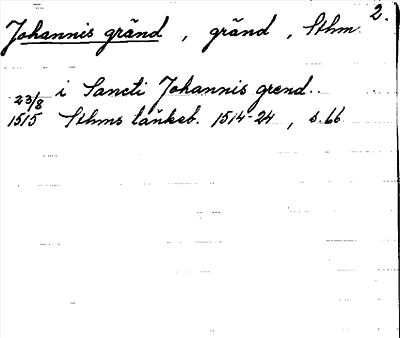 2.
Johannis gränd, gränd, Sthm.
23/8 i Sancti Johannis grend..
1515 Sthms tänkeb. 1514-24, s. 66